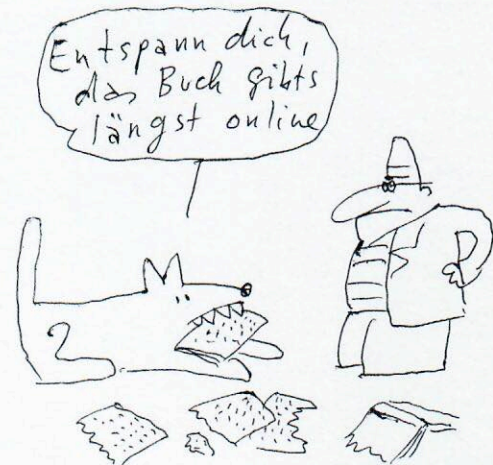 Entspann dich,
das Buch gibts
längst online